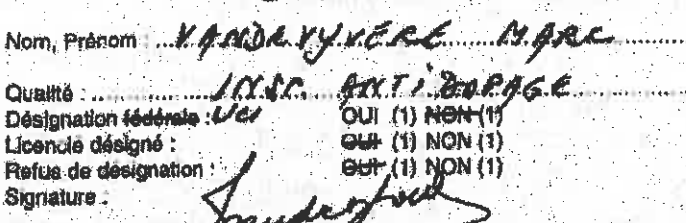 Nom, Prénom : VANDRYVERE MARC
Qualité : INSP. ANTIDOPAGE
Désignation fédérale : UCI OUI (1) NON (1)
Licencié désigné : OUI (1) NON (1)
Refus de désignation : OUI (1) NON (1)
Signature :